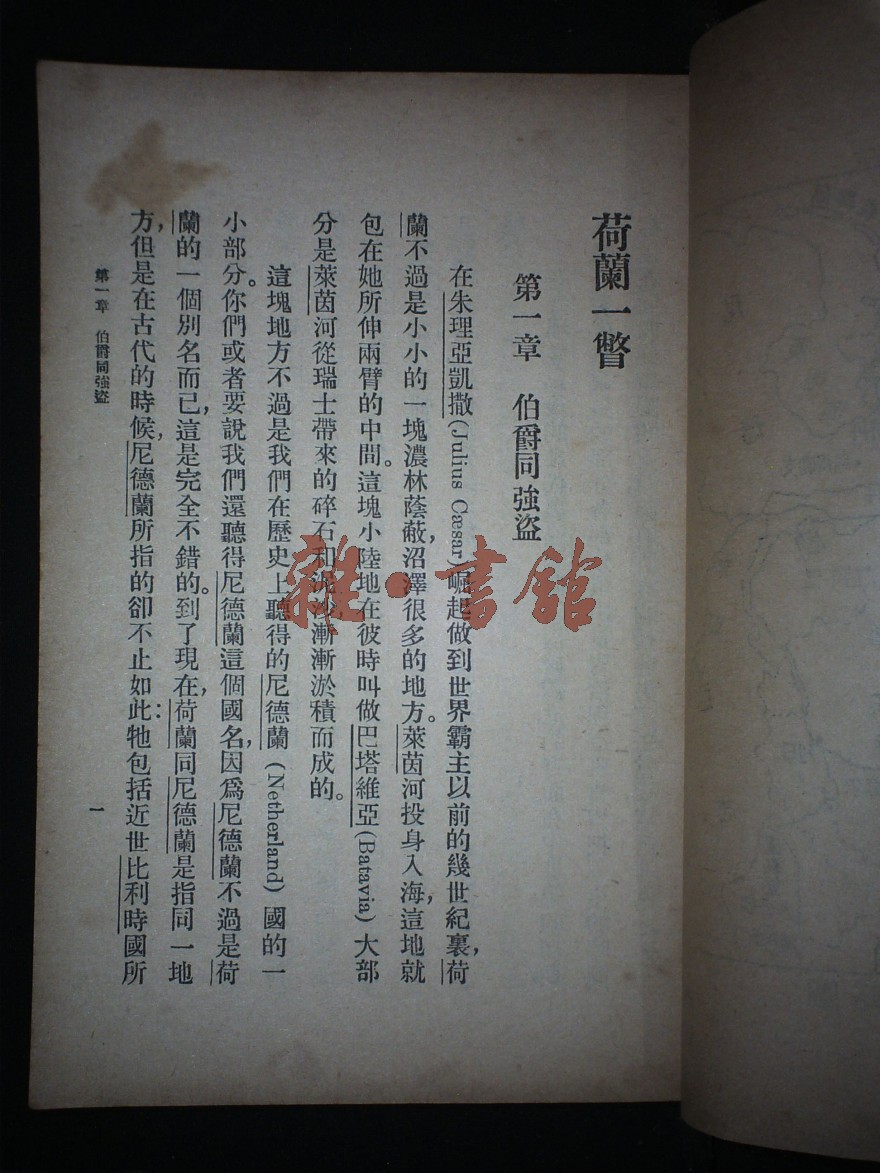 荷蘭一瞥
第一章　伯爵同強盜
在朱理亞凱撒(Julius Cæsar)崛起做到世界霸主以前的幾世紀裏，荷
蘭不過是小小的一塊濃林蔭蔽，沼澤很多的地方。萊茵河投身入海，這地就
包在她所伸兩臂的中間。這塊小陸地在彼時叫做巴塔維亞(Batavia)大部
分是萊茵河從瑞士帶來的碎石和泥沙漸漸淤積而成的。
這塊地方不過是我們在歷史上聽得的尼德蘭(Netherland)國的一
小部分。你們或者要說我們還聽得尼德蘭這個國名，因爲尼德蘭不過是荷
蘭的一個別名而已，這是完全不錯的。到了現在，荷蘭同尼德蘭是指同一地
方，但是在古代的時候，尼德蘭所指的卻不止如此：牠包括近世比利時國所
第一章　伯爵同強盜
一
雜·書館